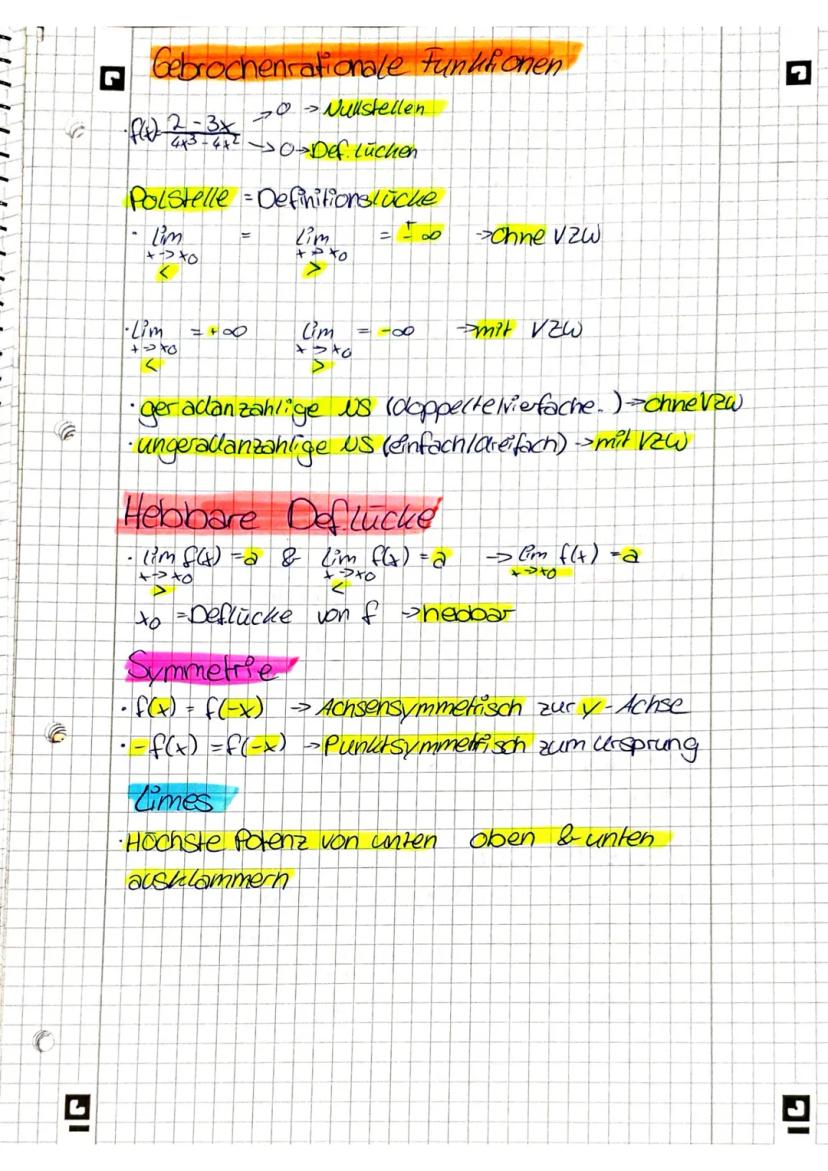 Gebrochenrationale Funktionen
· f(x) = (2-3x)/(4x³-4x²) →0 → Nullstellen
→0→Def.lücken
Polstelle = Definitionslücke
· lim x→x0 < = lim x→x0 > = ±∞ →ohne VZW
· lim x→x0 < = +∞ lim x→x0 > = -∞ →mit VZW
· geradanzahlige NS (doppelte/vierfache.)→ohne VZW
· ungeradanzahlige NS (einfach/dreifach)→mit VZW
Hebbare Def.lücke
· lim x→x0 > f(x) = a & lim x→x0 < f(x) = a → lim x→x0 f(x) = a
x0 = Deflücke von f →hebbar
Symmetrie
· f(x) = f(-x) → Achsensymmetrisch zur y-Achse
· -f(x) = f(-x) →Punktsymmetrisch zum Ursprung
Limes
· Höchste Potenz von unten oben & unten
ausklammern